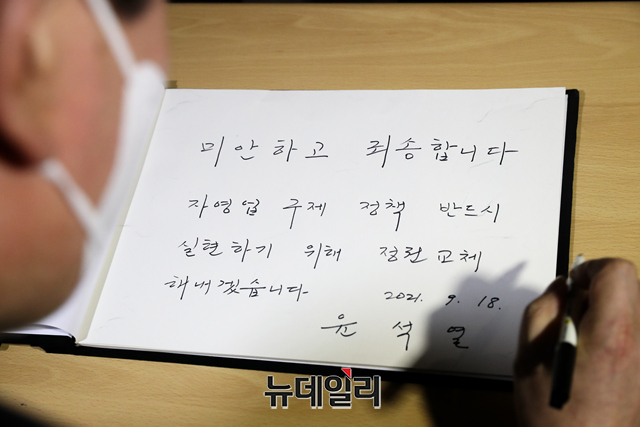 미안하고 죄송합니다
자영업 구제 정책 반드시
실현하기 위해 정권교체
해내겠습니다
2021. 9. 18.
윤 석 열
뉴데일리